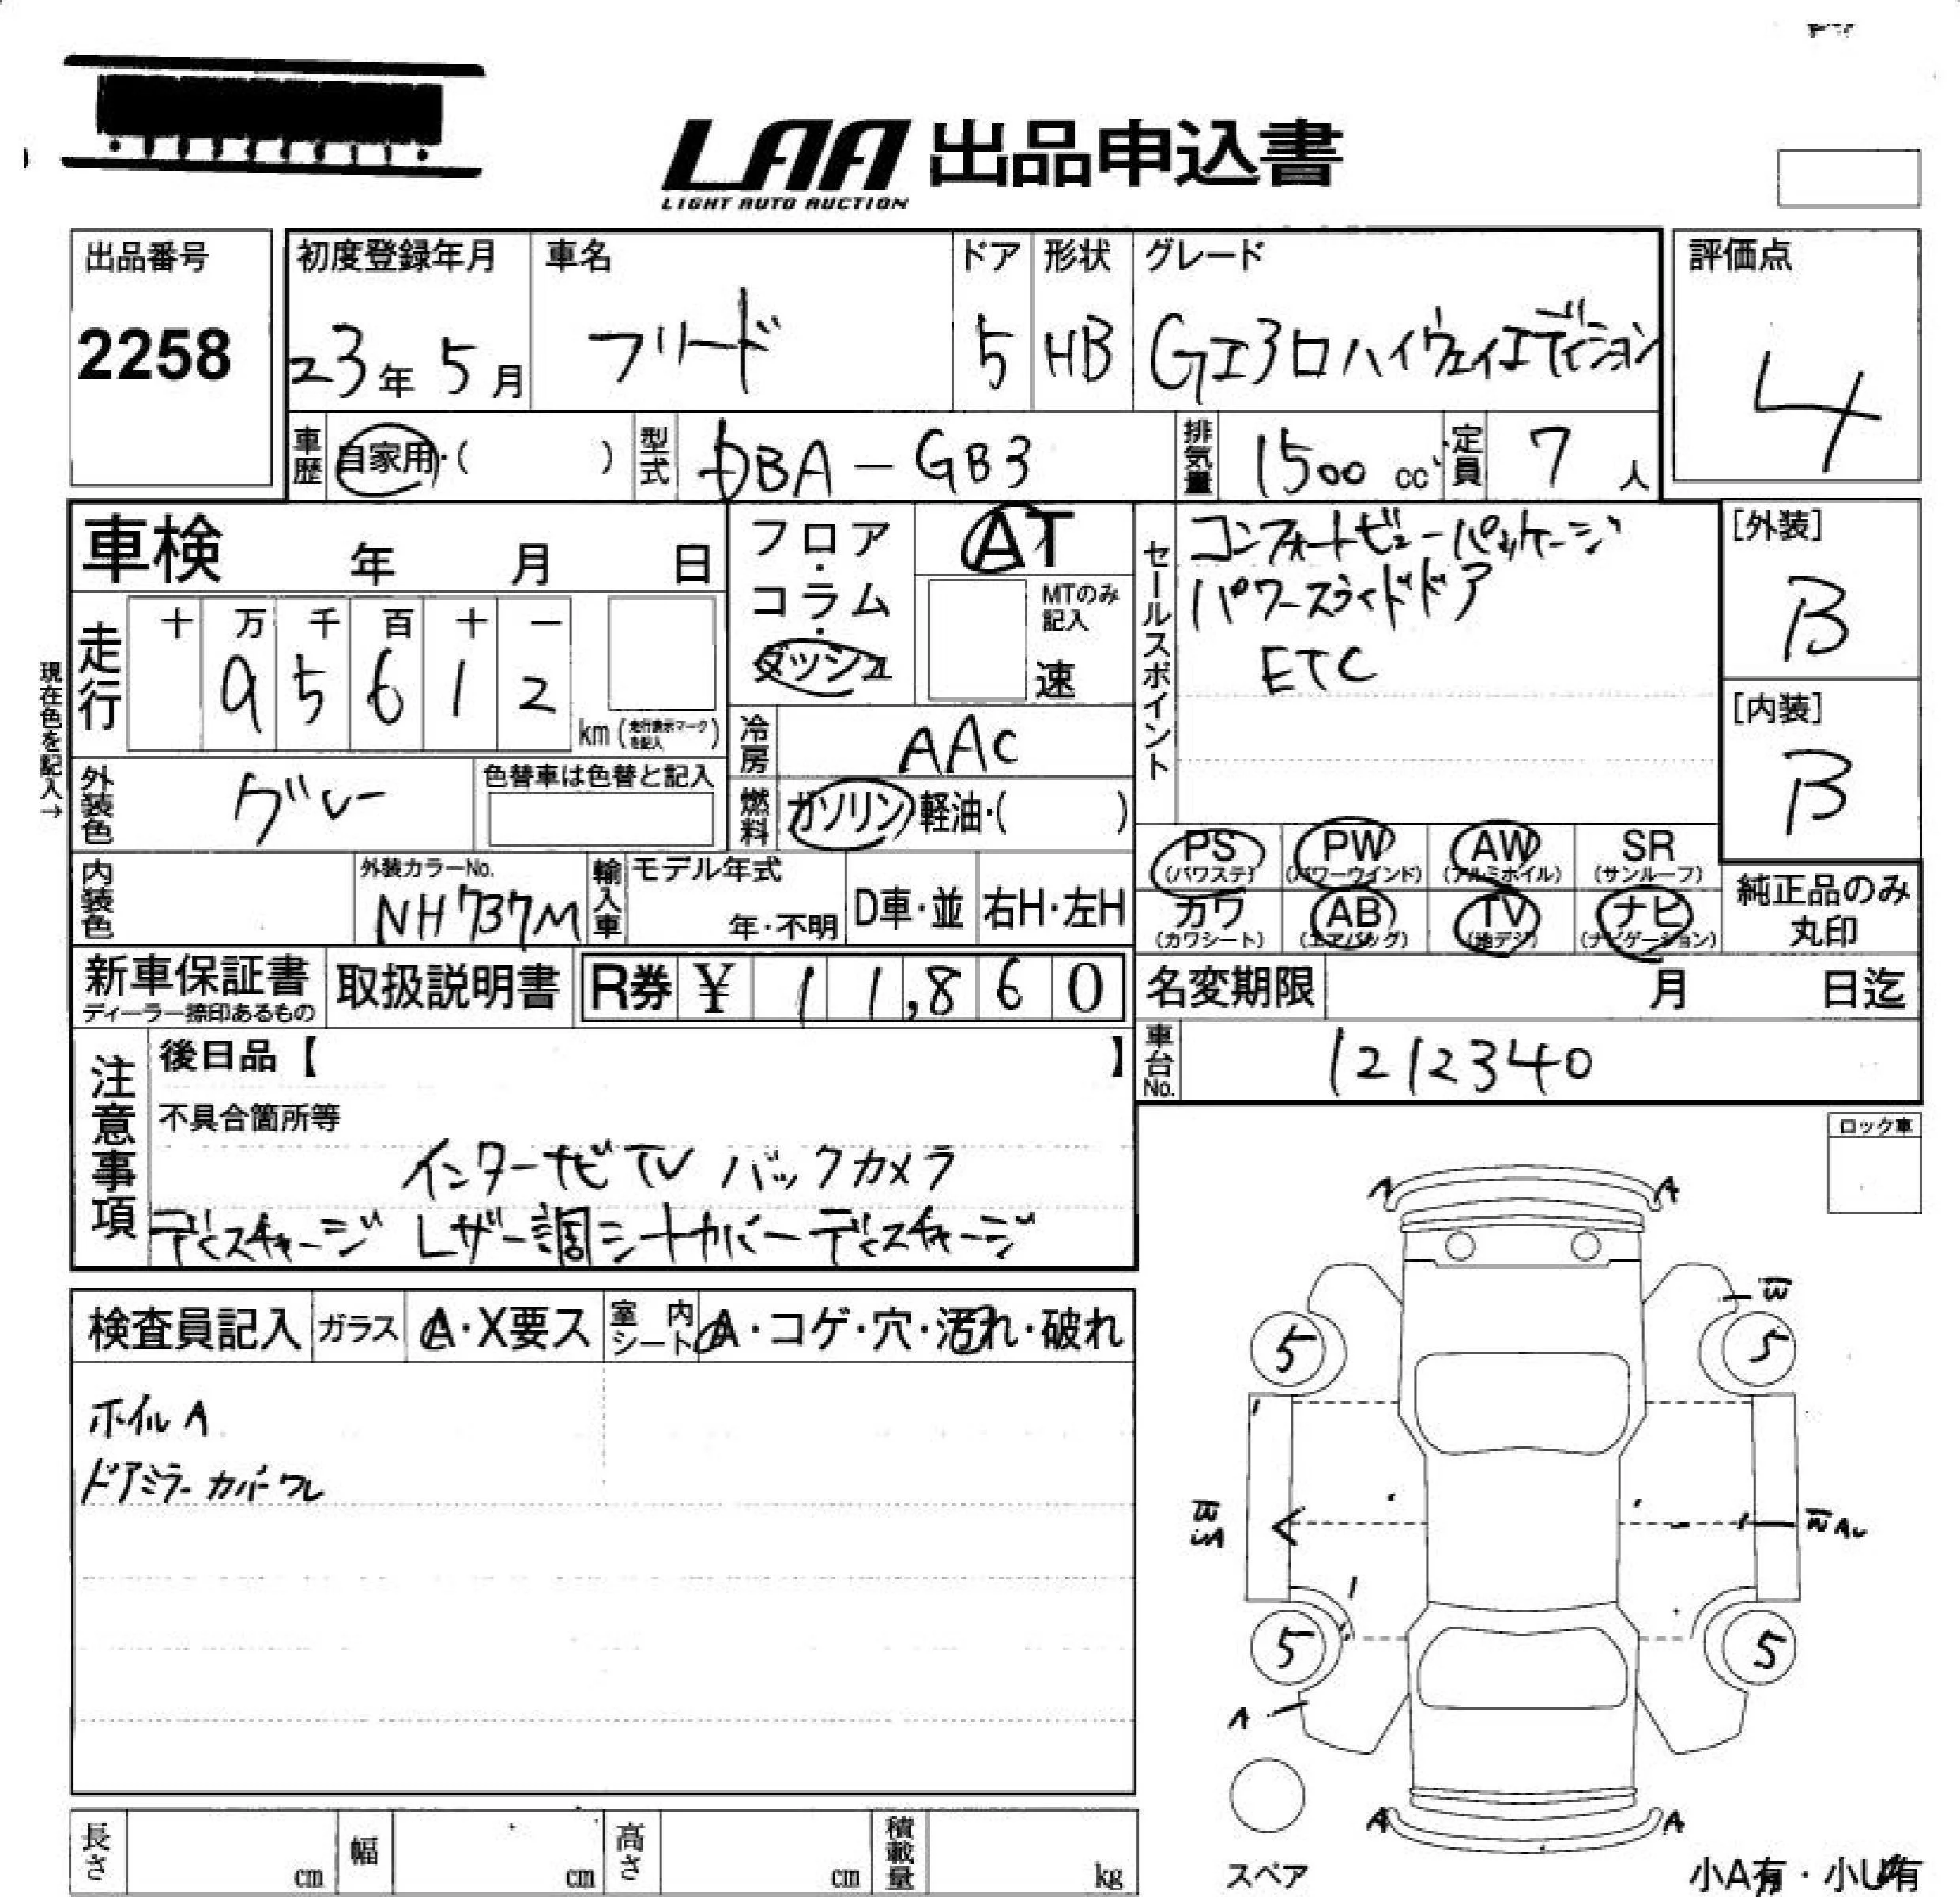 LAA 出品申込書
LIGHT AUTO AUCTION
出品番号
2258
初度登録年月
23年 5月
車名
フリード
ドア
5
形状
HB
グレード
Gエアロハイウェイエディション
評価点
4
車歴 自家用・( )
型式 DBA-GB3
排気量 1500 cc
定員 7 人
車検 年 月 日
走行 十 万 千 百 十 一
9 5 6 1 2
km (走行表示マークを記入)
現在色を記入→
フロア・コラム・ダッシュ
AT
MTのみ記入
速
冷房 AAC
燃料 ガソリン 軽油・( )
セールスポイント
コンフォートビューパッケージ
パワースライドドア
ETC
[外装]
B
[内装]
B
外装色 グレー
色替車は色替と記入
内装色
外装カラーNo.
NH737M
輸入車 モデル年式
年・不明
D車・並
右H・左H
PS (パワステ)
PW (パワーウインド)
AW (アルミホイル)
SR (サンルーフ)
カワ (カワシート)
AB (エアバッグ)
TV (地デジ)
ナビ (ナビゲーション)
純正品のみ
丸印
新車保証書
ディーラー捺印あるもの
取扱説明書
R券 ¥ 11,860
名変期限 月 日迄
車台No. 1212340
注意事項
後日品【 】
不具合箇所等
インターナビ TV バックカメラ
ディスチャージ レザー調シートカバー ディスチャージ
ロック車
検査員記入
ガラス A・X要ス
室内シート A・コゲ・穴・汚れ・破れ
ホイルA
ドアミラーカバーワレ
A A
5 5
5 5
A
A A
スペア
小A有・小U有
長さ cm
幅 cm
高さ cm
積載量 kg